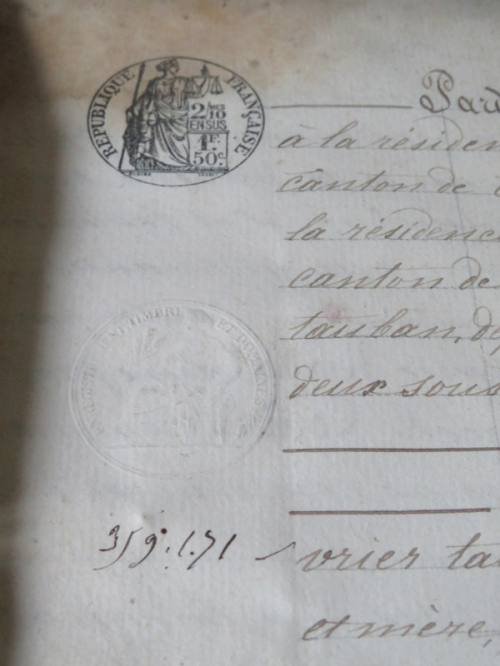 RÉPUBLIQUE FRANÇAISE
2/10 EN SUS
1F 50c
Pard
à la résiden
canton de
la résidenc
canton de
tauban, de
deux sous
359.1.71
vrier ta
et mère,